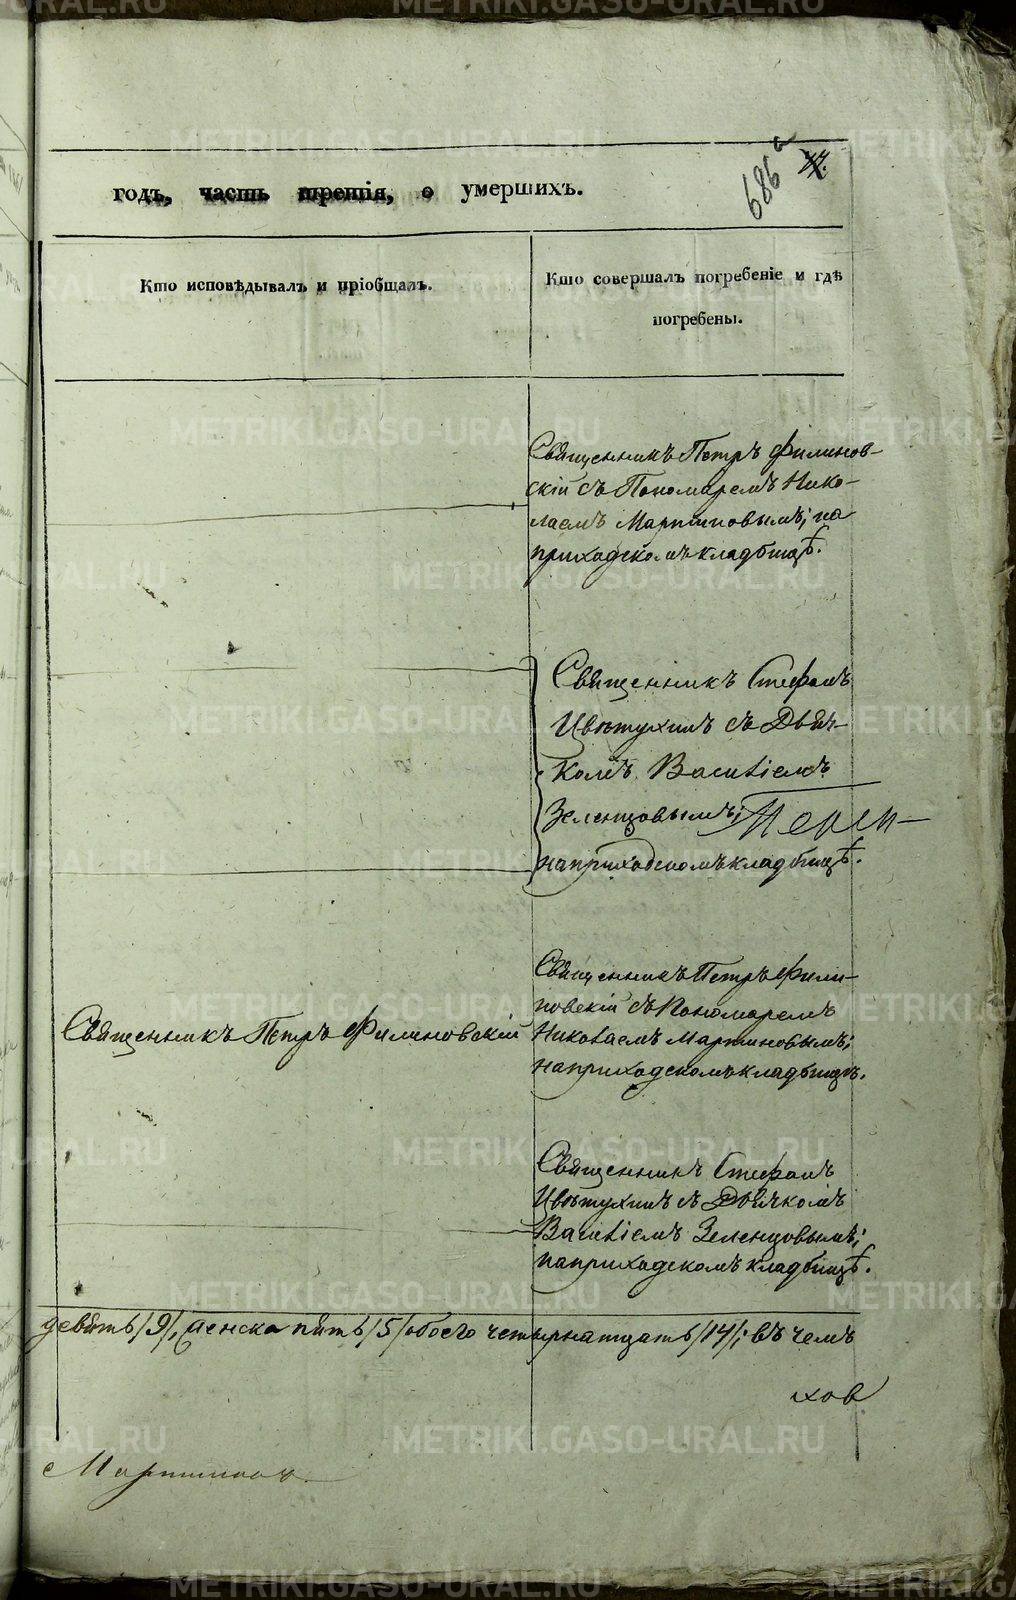 686 а
годъ, часть третія, о умершихъ.
Кто исповѣдывалъ и пріобщалъ.
Кто совершалъ погребеніе и гдѣ
погребены.
Священникъ Петръ Филинов-
скій съ Пономаремъ Нико-
лаемъ Мартиновымъ; на
приходскомъ кладбищѣ.
Священникъ Стефанъ
Цвѣтухинъ съ Дьяч-
комъ Василіемъ
Зеленцовымъ;
на приходскомъ кладбищѣ.
Священникъ Петръ Филиновскій
Священникъ Петръ Фили-
новскій съ Пономаремъ
Николаемъ Мартиновымъ;
на приходскомъ кладбищѣ.
Священникъ Стефанъ
Цвѣтухинъ съ Дьячкомъ
Василіемъ Зеленцовымъ;
на приходскомъ кладбищѣ.
девять /9/, женска пять /5/ обоего четырнатцать /14/; въ чемъ
хов
Мартиновъ
METRIKI.GASO-URAL.RU